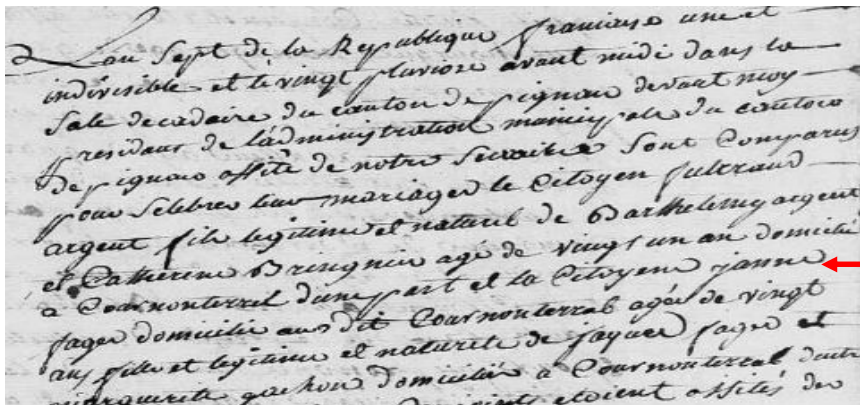 L'an Sept de la Republique francaise une et
indivisible et le vingt pluviose avant midi dans la
Sale decadaire du canton de pignan devant moy
presidant de ladministration municipale du canton
de pignan assité de notre Secretaire Sont Comparus
pour Selebrer leur mariage le Citoyen fulcrand
argent fils legitime et naturel de Barthelemy argent
et Catherine Bringuier agé de vingt un an domicilié
à Cournonterral d'une part et la Citoyene janne
fages domicilié audit Cournonterral agée de vingt
ans fille et legitime et naturele de jaques fages et
marguerite domiciliés à Cournonterral dautre
etoient assités de